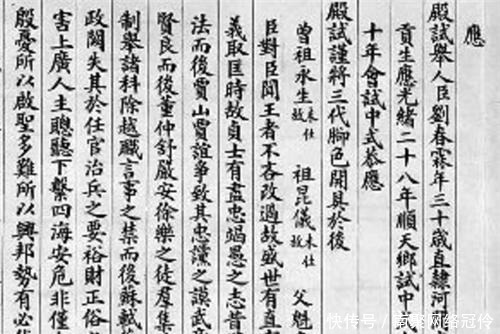 應
殿試舉人臣劉春霖年三十歲直隸河
貢生應光緒二十八年順天鄉試中
十年會試中式恭應
殿試謹將三代腳色開具於後
曾祖永生未仕故 祖昆儀未仕故 父魁
臣對臣聞王者不吝改過故盛世有直
義取匡時故貞士有盡忠竭愚之志昔
法而後賈山賈誼爭致其忠讜之謨武
賢良而後董仲舒嚴安徐樂之徒羣集
制舉諸科除越職言事之禁而後蘇軾
政闕失其於任官治兵之要裕財正俗
害上廣人主聰聽下繫四海安危非僅
殷憂所以啟聖多難所以興邦勢有必
快传号